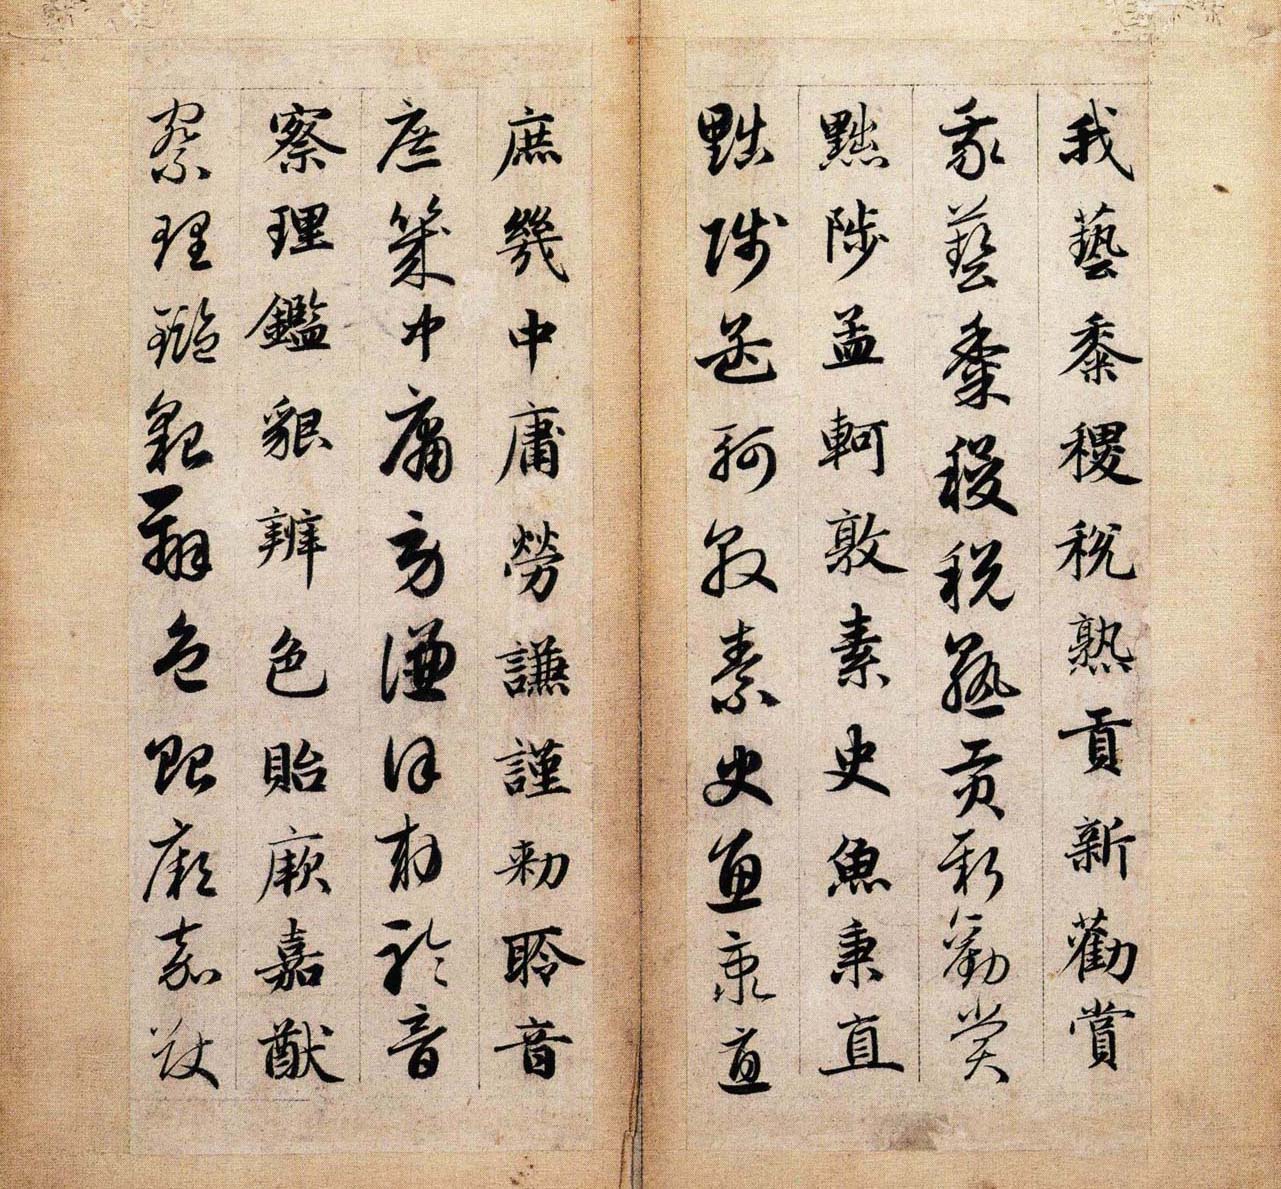 我藝黍稷稅熟貢新勸賞
我藝黍稷稅熟貢新勸賞
黜陟孟軻敦素史魚秉直
黜陟孟軻敦素史魚秉直
庶幾中庸勞謙謹勑聆音
庶幾中庸勞謙謹勑聆音
察理鑑貌辨色貽厥嘉猷
察理鑑貌辨色貽厥嘉猷